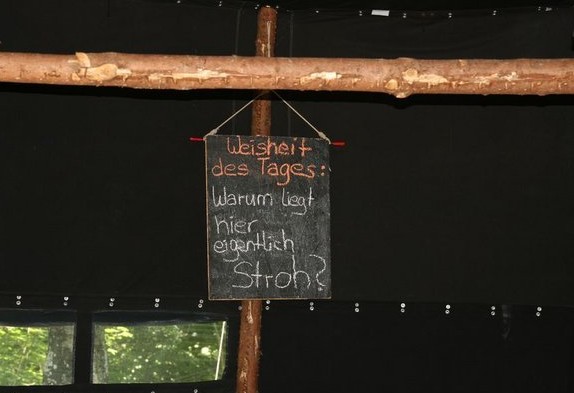 Weisheit
des Tages:
Warum liegt
hier
eigentlich
Stroh?